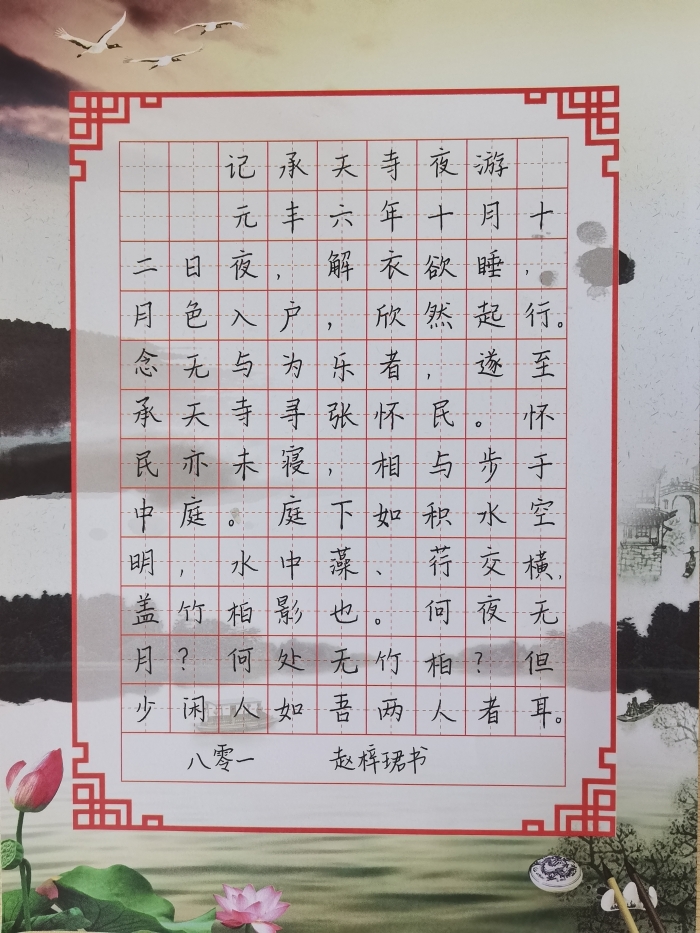 记承天寺夜游
元丰六年十月十
二日夜，解衣欲睡，
月色入户，欣然起行。
念无与为乐者，遂至
承天寺寻张怀民。怀
民亦未寝，相与步于
中庭。庭下如积水空
明，水中藻、荇交横，
盖竹柏影也。何夜无
月？何处无竹柏？但
少闲人如吾两人者耳。
八零一 赵梓珺书